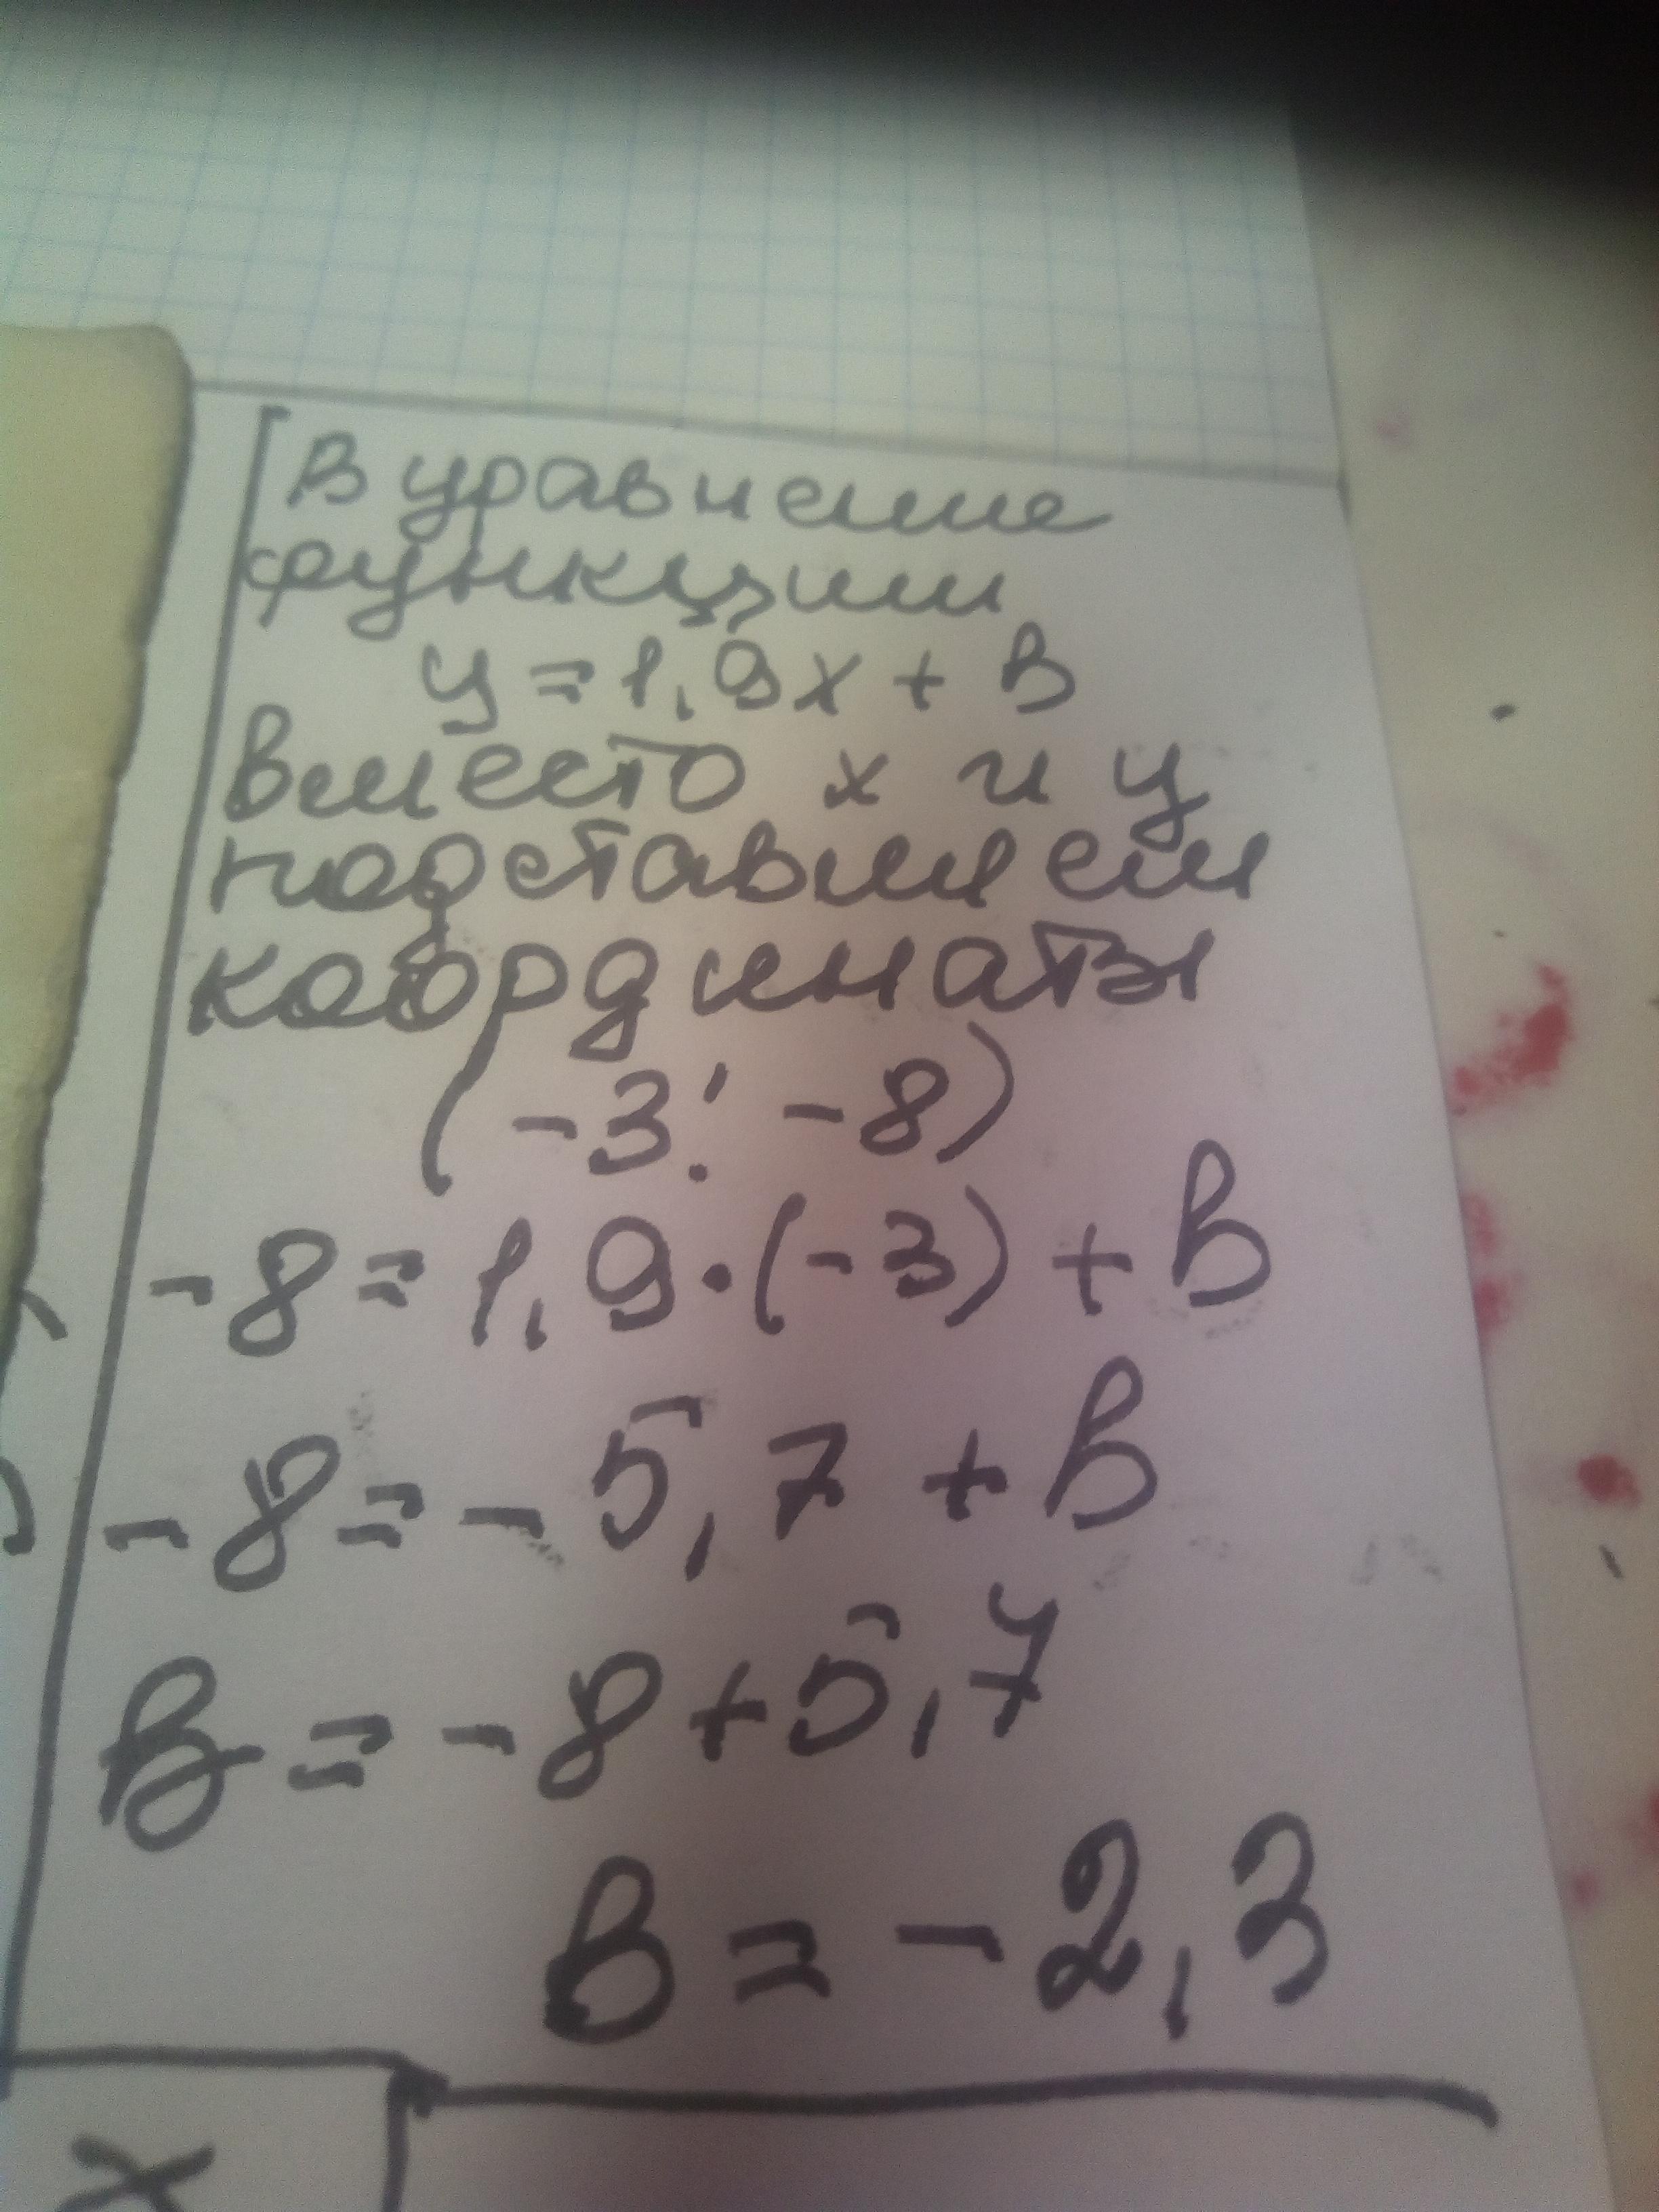 В уравнение
функции
у = 1,9х + в
вместо х и у
подставляем
координаты
(-3; -8)
-8 = 1,9·(-3) + в
-8 = -5,7 + в
в = -8 + 5,7
в = -2,3
х